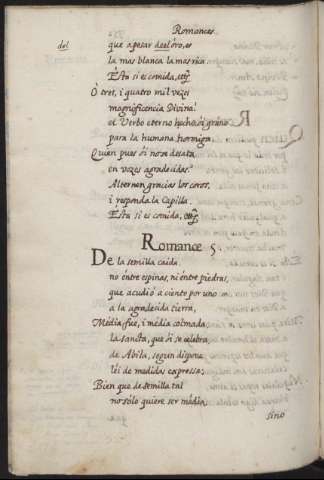 Romances.
del
que apesar deel óro, es
la mas blanca la mas rica.
Ésta si es comida, ettz̃.
Ò tres, i quatro mil vezes
magnificencia Divina!
el Verbo eterno hecho, si grano
para la humana hormiga.
Quien pues ói no se desata
en vozes agradecidas?
Alternen gracias los coros,
i responda la Capilla.
Esta si es comida, ettz̃.
Romance 5.
De la semilla caida
no entre espinas, ni éntre piedras,
que acudió a ciento por uno
a la agradecida tierra,
Média fue, i média colmada
la sancta, que ói se celebra
de Abila, segun dispone
léi de medidas expresso;
Bien que de semilla tal
no solo quiere ser média;
sino